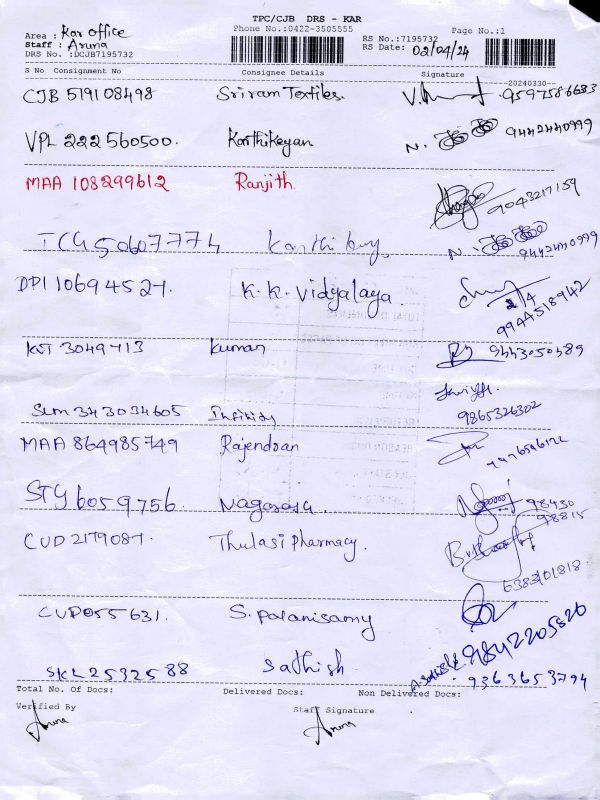 TPC/CJB DRS - KAR
Area : Kar office Phone No.:0422-3505555 RS No.:7195732 Page No.:1
Staff : Aruna RS Date: 02/04/24
DRS No. :DCJB7195732
S No Consignment No Consignee Details Signature
20240330
CJB 519108498 Sriram Textiles. 9597586683
VPL 222560500. Karthikeyan N. 9442440999
MAA 108299612 Ranjith. 9043217159
Karthi N. 9442440999
DPI 10694521. K.K. Vidyalaya 2/4
9944518942
3049413 Kuman 9443050489
SLM 343034605 9865326302
MAA 864985749 Rajendran
STY 6059756 98430
98815
CUD 2179087 Thulasi pharmacy.
CUD055631. S. Palanisamy 9842205820
SKL 2532588 Sathish 9363653794
Total No. Of Docs: Delivered Docs: Non Delivered Docs:
Verified By Staff Signature
Aruna Aruna